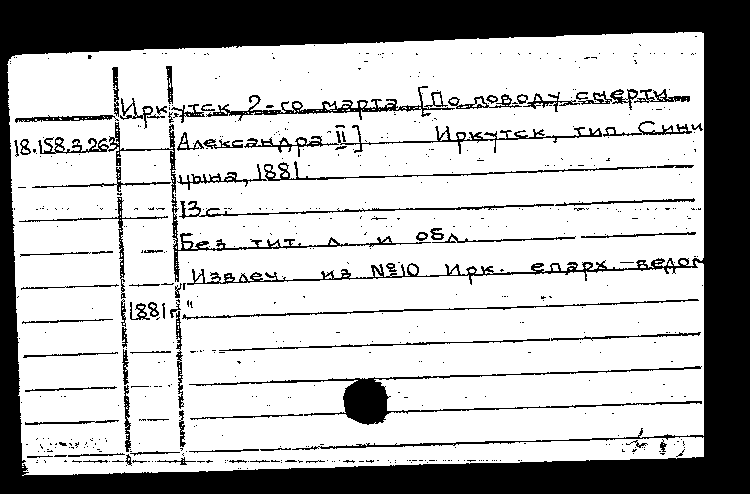 Иркутск, 2-го марта. [По поводу смерти
18.158.3.263 Александра II] Иркутск, тип. Сини
цына, 1881.
13 с.
Без тит. л. и обл.
"Извлеч. из №10 Ирк. епарх. ведом
1881 г."